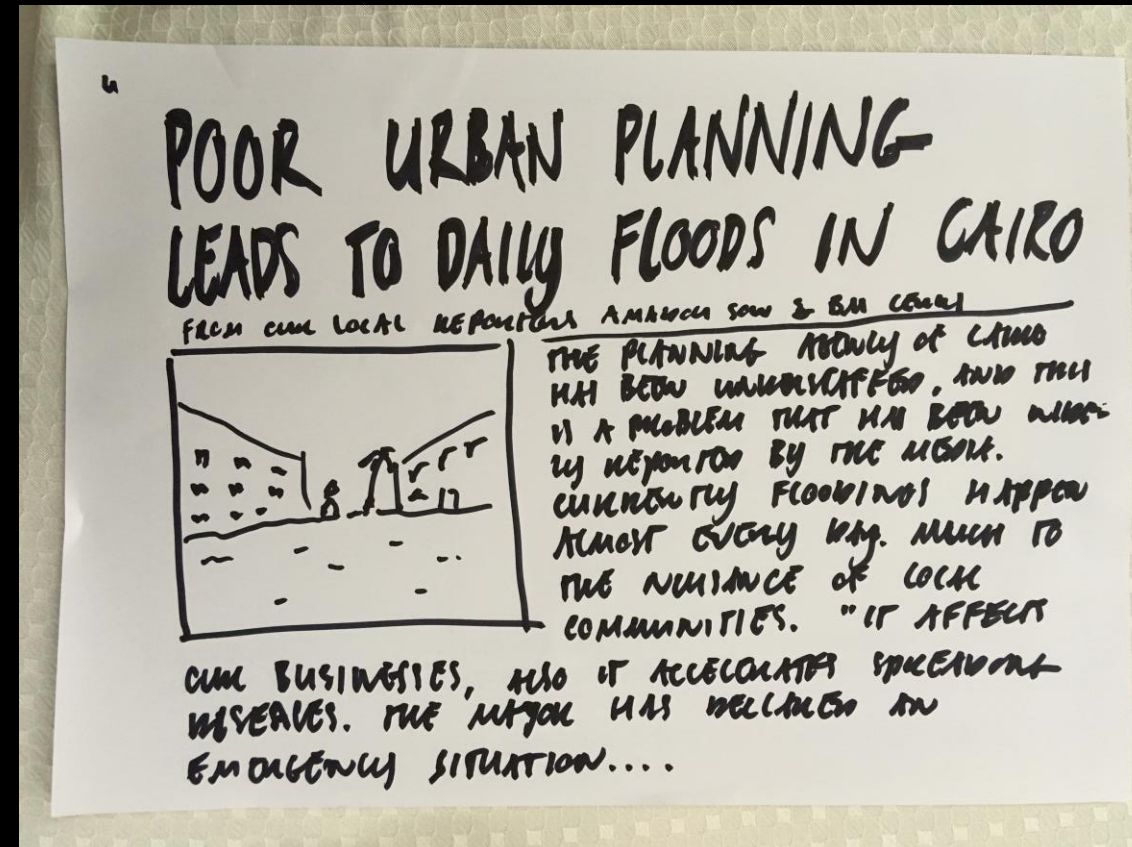 4
POOR URBAN PLANNING
LEADS TO DAILY FLOODS IN CAIRO
FROM OUR LOCAL REPORTERS
THE PLANNING AGENCY OF CAIRO
HAS BEEN UNDERSTAFFED, AND THIS
IS A PROBLEM THAT HAS BEEN WIDE-
LY REPORTED BY THE MEDIA.
CURRENTLY FLOODINGS HAPPEN
ALMOST EVERY DAY. MUCH TO
THE NUISANCE OF LOCAL
COMMUNITIES. "IT AFFECTS
OUR BUSINESSES, ALSO IT ACCELERATES SPREADING
DISEASES. THE MAYOR HAS DECLARED AN
EMERGENCY SITUATION....